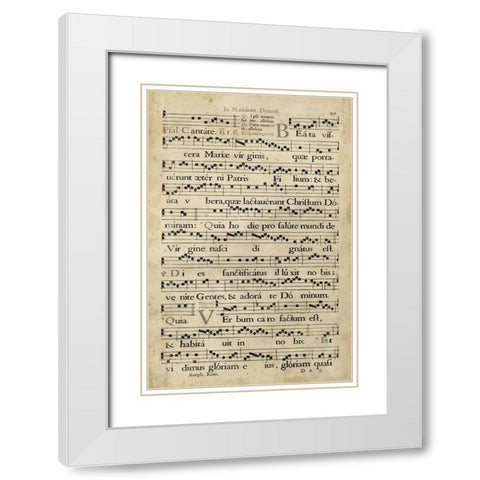 In Nativitate Domini. 27
Psal. Cantáte. fj r 6. BEáta vis-
cera Maríæ vir ginis, quæ porta-
vérunt ætér ni Patris Fi lium: & be-
áta v bera, quæ lactavérunt Christum Dó-
minum: * Quia ho die pro salúte mundi de
Vir gine nasci di gnátus est.
℣. Di es sanctificátus il lúxit no bis:
ve nite Gentes, & adorá te Dó minum.
Quia. VEr bum ca ro factum est,
& habitá uit in no bis. Et
vi dimus glóriam e ius, glóriam quasi
Antph. Rom. D